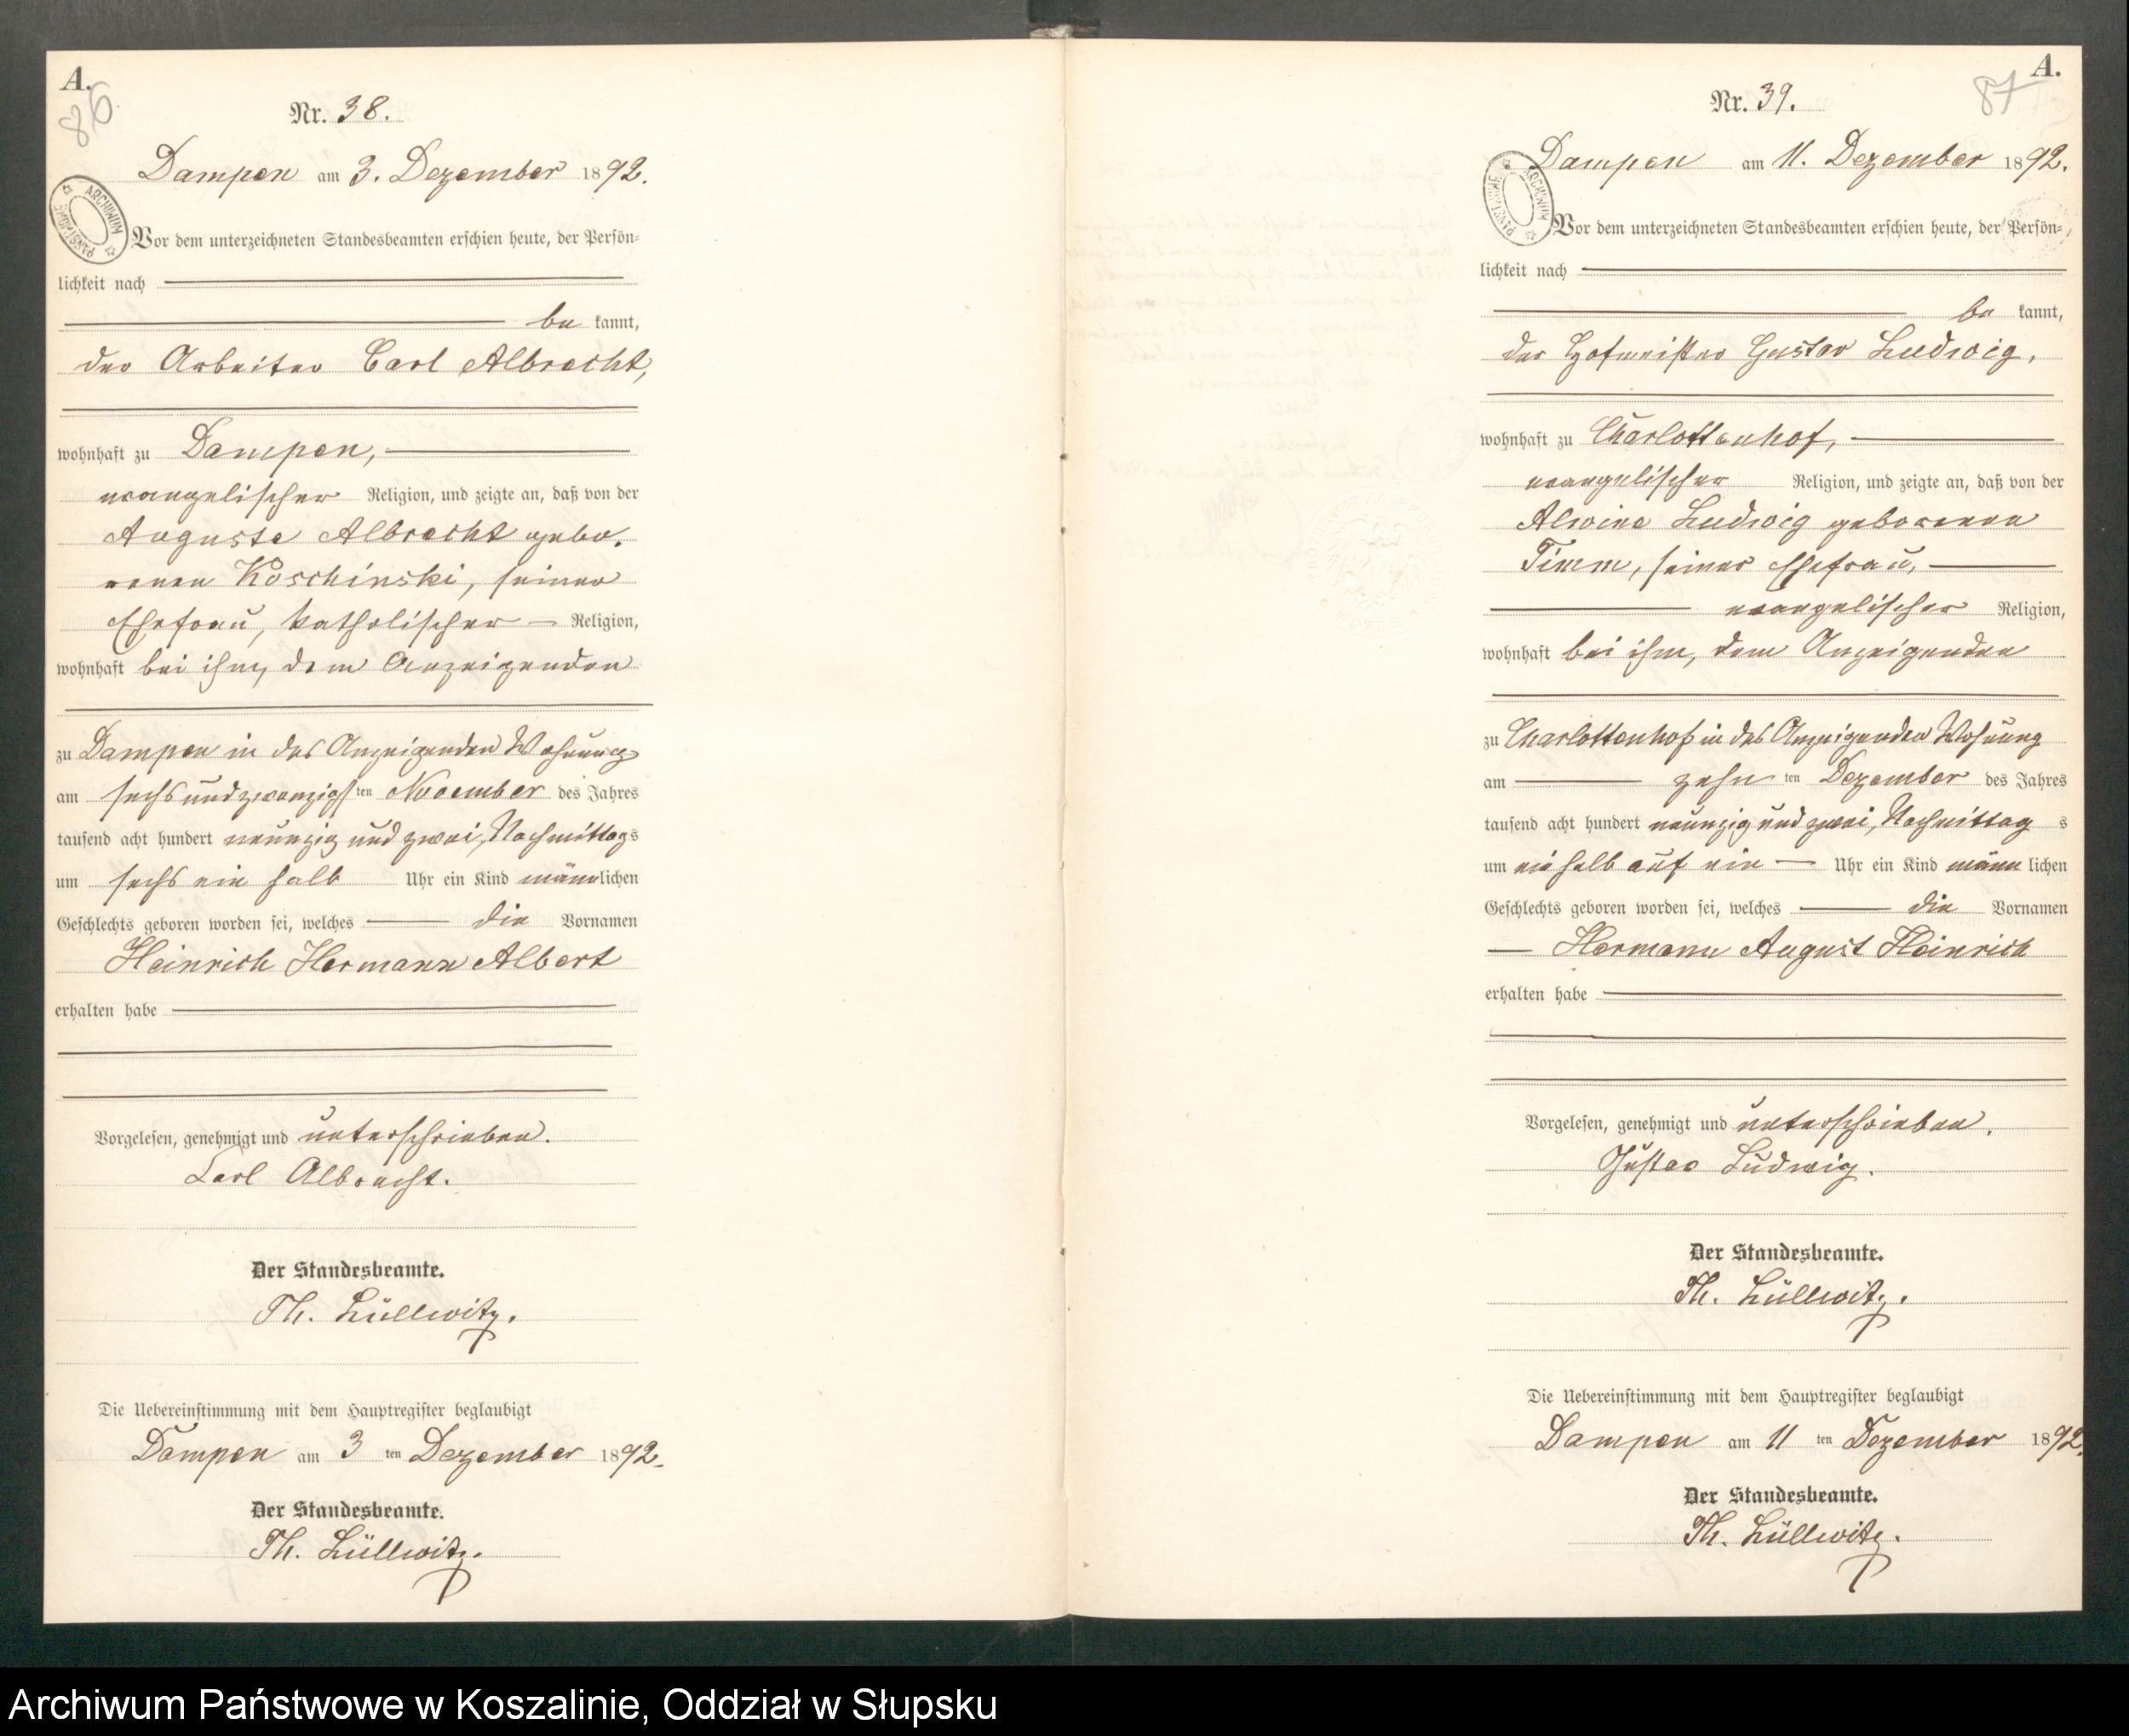 A.
86
Nr. 38.
Dampen am 3. Dezember 1892.
ARCHIWUM PAŃSTWOWE
Vor dem unterzeichneten Standesbeamten erschien heute, der Persön-
lichkeit nach
be kannt,
der Arbeiter Carl Albrecht,
wohnhaft zu Dampen,
evangelischer Religion, und zeigte an, daß von der
Auguste Albrecht gebo-
renen Koschinski, seiner
Ehefrau, katholischer Religion,
wohnhaft bei ihm, dem Anzeigenden
zu Dampen in des Anzeigenden Wohnung
am sechsundzwanzigsten November des Jahres
tausend acht hundert neunzig und zwei, Nachmittags
um sechs ein halb Uhr ein Kind männlichen
Geschlechts geboren worden sei, welches die Vornamen
Heinrich Hermann Albert
erhalten habe
Vorgelesen, genehmigt und unterschrieben.
Carl Albrecht.
Der Standesbeamte.
Th. Lüllwitz.
Die Uebereinstimmung mit dem Hauptregister beglaubigt
Dampen am 3 ten Dezember 1892.
Der Standesbeamte.
Th. Lüllwitz.
A.
87
Nr. 39.
Dampen am 11. Dezember 1892.
ARCHIWUM PAŃSTWOWE
Vor dem unterzeichneten Standesbeamten erschien heute, der Persön-
lichkeit nach
be kannt,
der Hofmeister Gustav Ludwig,
wohnhaft zu Charlottenhof,
evangelischer Religion, und zeigte an, daß von der
Alwine Ludwig geborenen
Timm, seiner Ehefrau,
evangelischer Religion,
wohnhaft bei ihm, dem Anzeigenden
zu Charlottenhof in des Anzeigenden Wohnung
am zehn ten Dezember des Jahres
tausend acht hundert neunzig und zwei, Nachmittag s
um ein halb auf ein Uhr ein Kind männ lichen
Geschlechts geboren worden sei, welches die Vornamen
Hermann August Heinrich
erhalten habe
Vorgelesen, genehmigt und unterschrieben.
Gustav Ludwig.
Der Standesbeamte.
Th. Lüllwitz.
Die Uebereinstimmung mit dem Hauptregister beglaubigt
Dampen am 11 ten Dezember 1892.
Der Standesbeamte.
Th. Lüllwitz.
Archiwum Państwowe w Koszalinie, Oddział w Słupsku